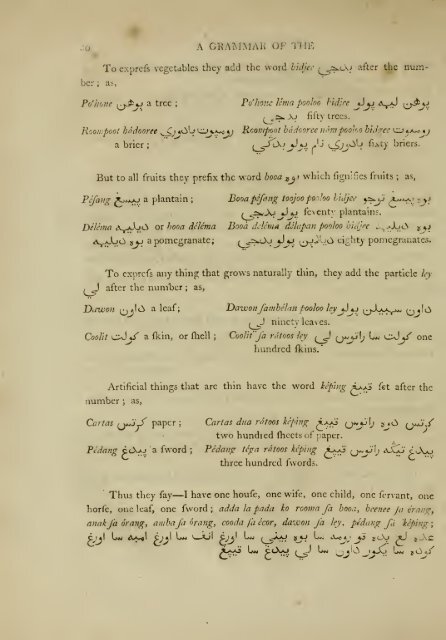 A GRAMMAR OF THE
To expreſs vegetables they add the word bidjee بدجي after the num-
ber; as,
Po'hone پوهن a tree; Po'hone lima pooloo bidjee پوهن ليمه پولو
بدجي fifty trees.
Roompoot bádooree رومپوت بادوري Roompoot bádooree nám pooloo bidgee رومپوت
a brier; بادوري نام پولو بدكي ſixty briers.
But to all fruits they prefix the word booa بوه which ſignifies fruits; as,
Péſang پيسڠ a plantain; Booa péſang toojoo pooloo bidjee بوه پيسڠ توجو
پولو بدجي ſeventy plantains.
Déléma ديليمه or booa déléma Booa déléma délapan pooloo bidjee بوه ديليمه
بوه ديليمه a pomegranate; ديلاپن پولو بدجي eighty pomegranates.
To expreſs any thing that grows naturally thin, they add the particle ley
لي after the number; as,
Dawon داون a leaf; Dawon ſambélan pooloo ley داون سمبيلن پولو
لي ninety leaves.
Coolit كولت a ſkin, or ſhell; Coolit ſa rátoos ley كولت سا راتوس لي one
hundred ſkins.
Artificial things that are thin have the word képing قيپڠ ſet after the
number; as,
Cartas كرتس paper; Cartas dua rátoos képing كرتس دوه راتوس قيپڠ
two hundred ſheets of paper.
Pédang پيدڠ a ſword; Pédang téga rátoos képing پيدڠ تيݢه راتوس قيپڠ
three hundred ſwords.
Thus they ſay—I have one houſe, one wife, one child, one ſervant, one
horſe, one leaf, one ſword; adda la pada ko rooma ſa booa, beenee ſa órang,
anak ſa órang, amba ſa órang, cooda ſa écor, dawon ſa ley, pédang ſa képing;
رومه سا بوه بيني سا اورڠ سا اورڠ امبه سا اورڠ
كوده سا يكور داون سا لي پيدڠ سا قيپڠ